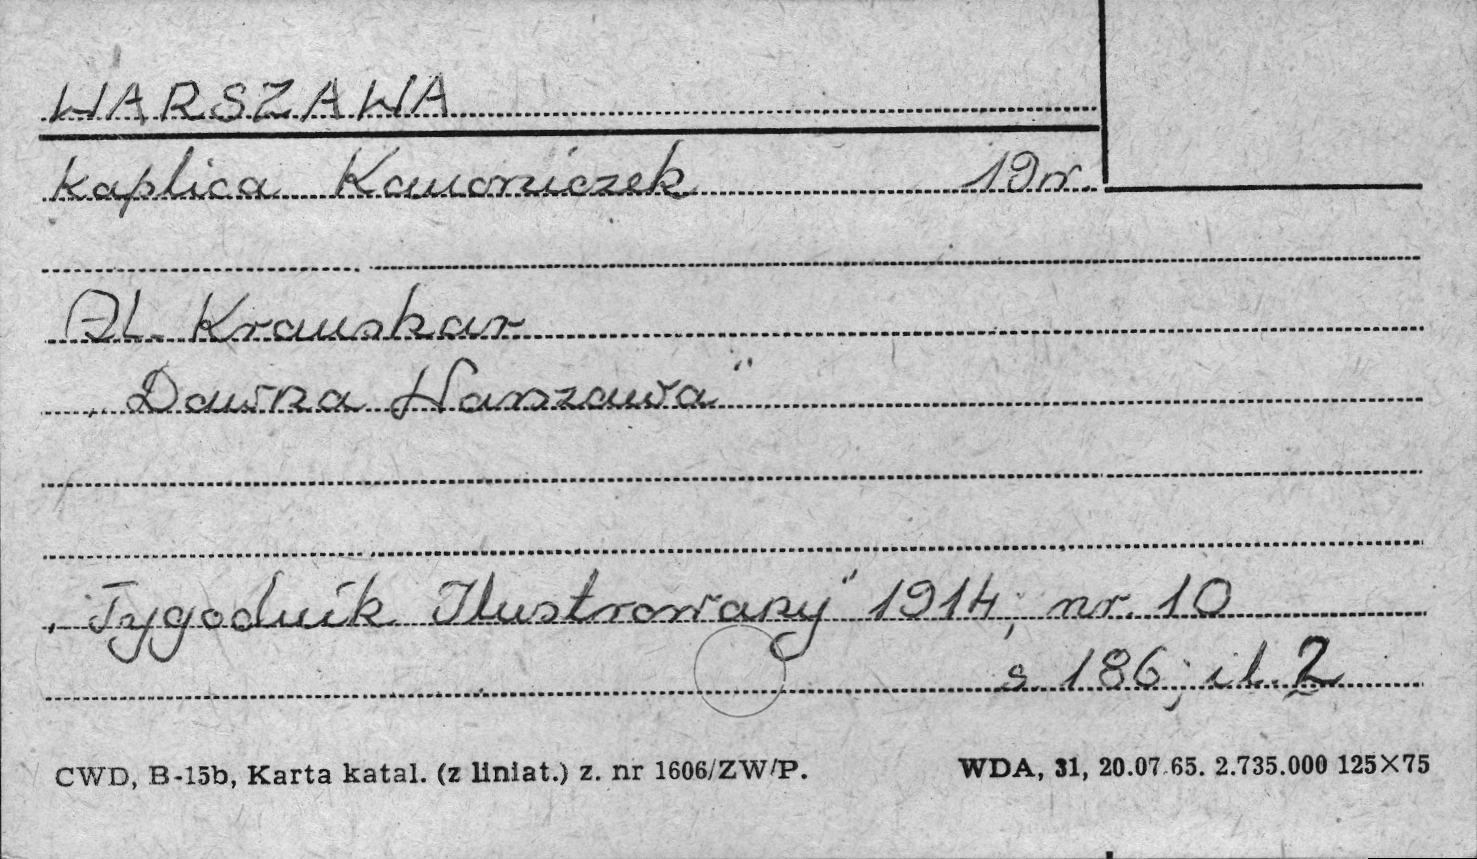 WARSZAWA
kaplica Kanoniczek 19 w.
Al. Kraushar
„Dawna Warszawa"
„Tygodnik Ilustrowany" 1914, nr. 10
s 186; il. 2
CWD, B-15b, Karta katal. (z liniat.) z. nr 1606/ZW/P. WDA, 31, 20.07.65. 2.735.000 125×75